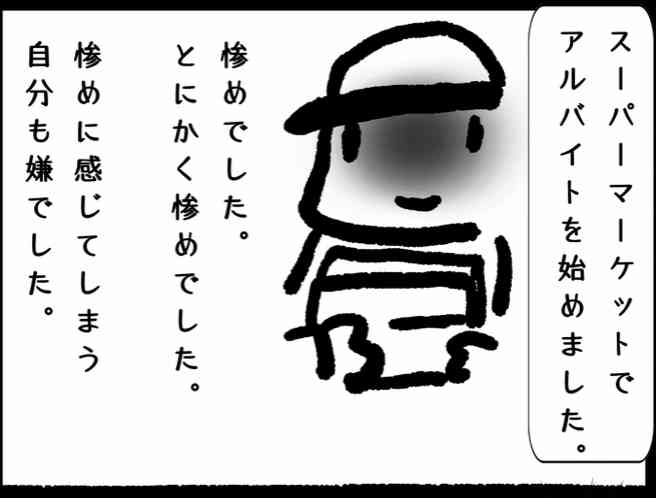 スーパーマーケットで
アルバイトを始めました。
惨めでした。
とにかく惨めでした。
惨めに感じてしまう
自分も嫌でした。